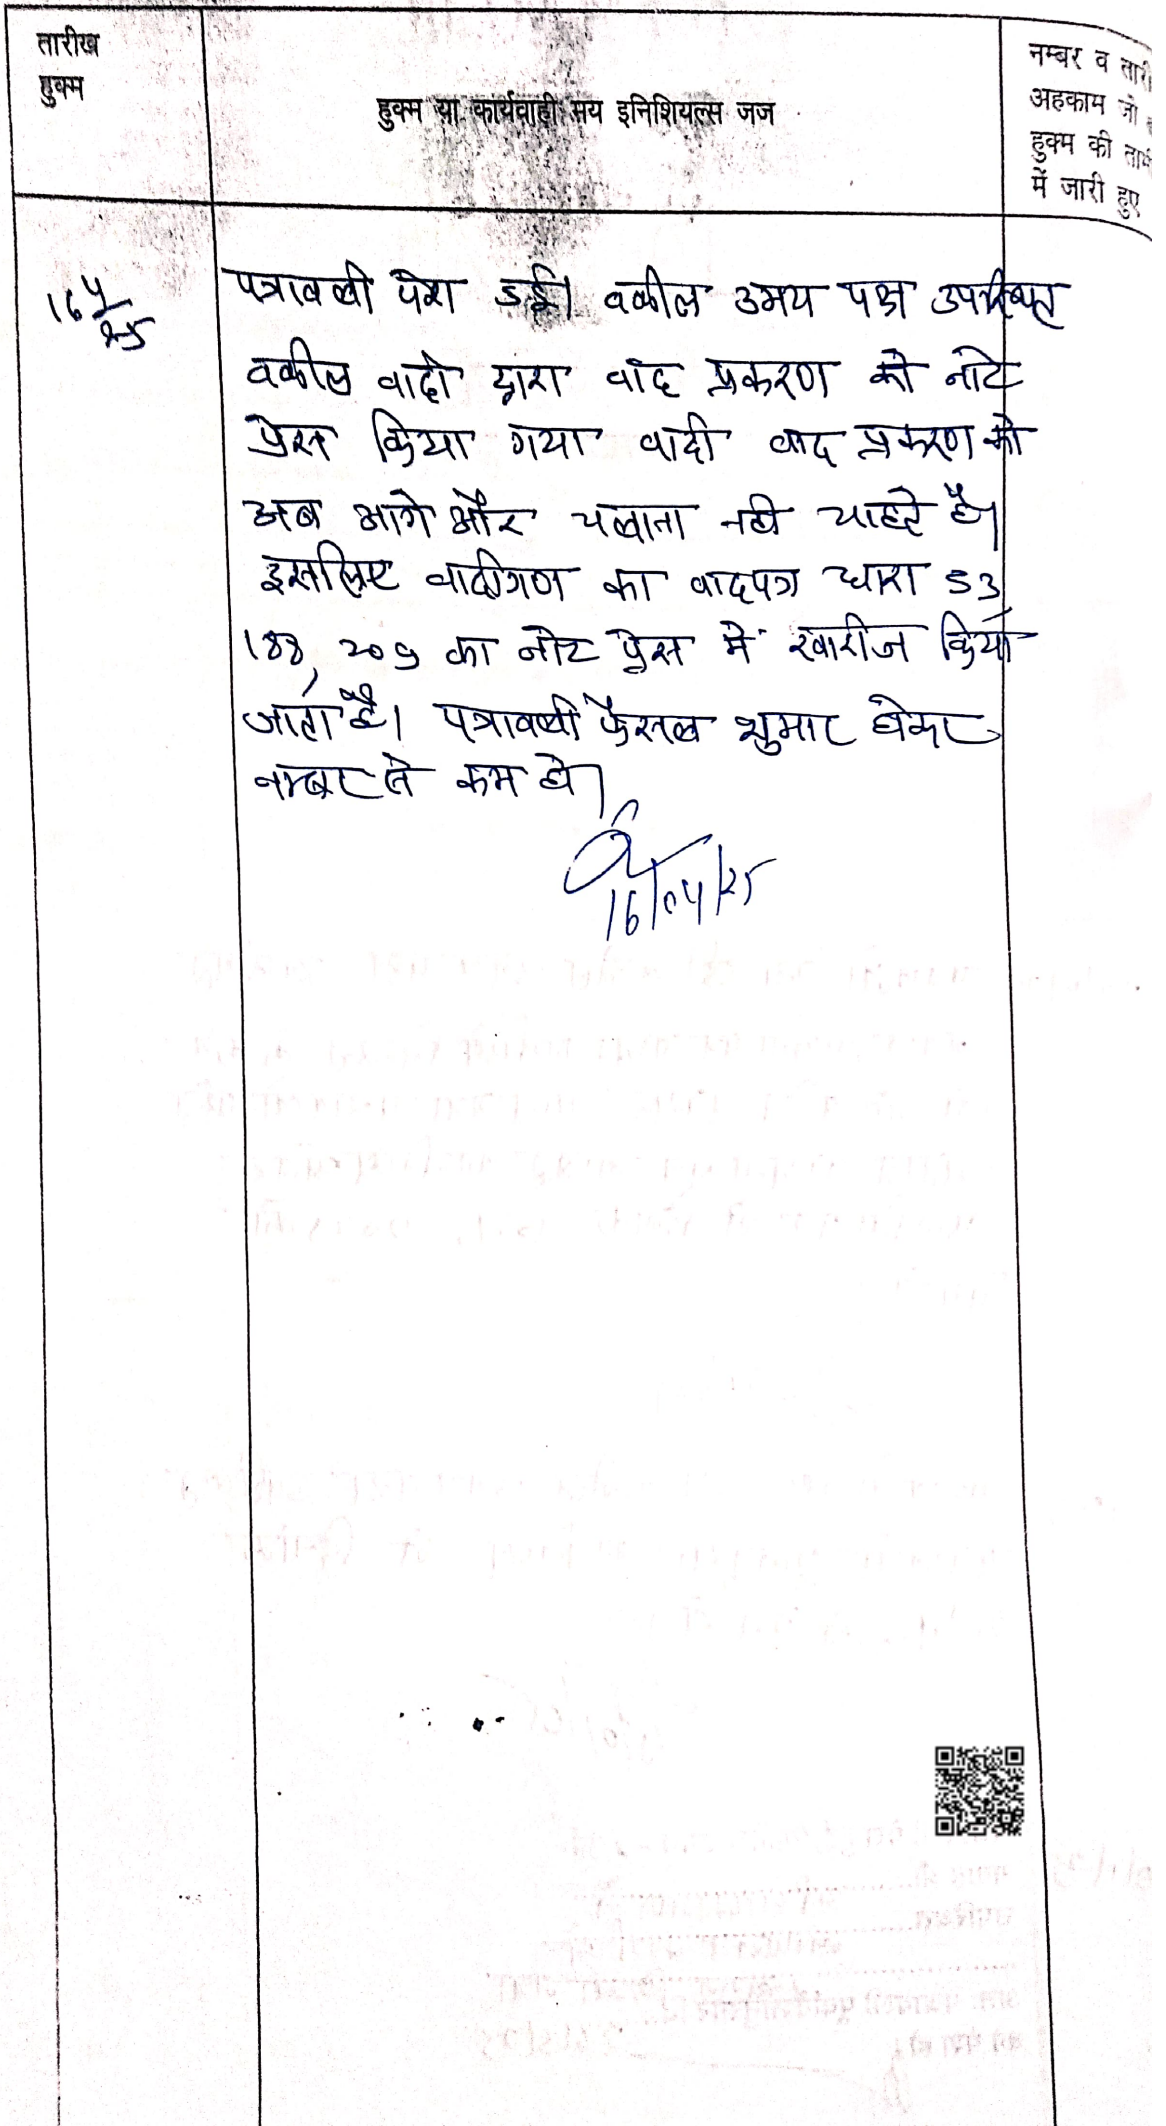 तारीख
हुक्म
हुक्म या कार्यवाही मय इनिशियल्स जज
नम्बर व तारी
अहकाम जो
हुक्म की तामी
में जारी हुए
16/4/25
पत्रावली पेश हुई। वकील उभय पक्ष उपस्थित
वकील वादी द्वारा वाद प्रकरण को नोट
प्रेस किया गया वादी वाद प्रकरण को
अब आगे और चलाना नही चाहते है।
इसलिए वादीगण का वादपत्र धारा 53,
188, 209 का नोट प्रेस मे खारीज किया
जाता है। पत्रावली फैसल शुमार होकर
नम्बर से कम हो।
16/04/25